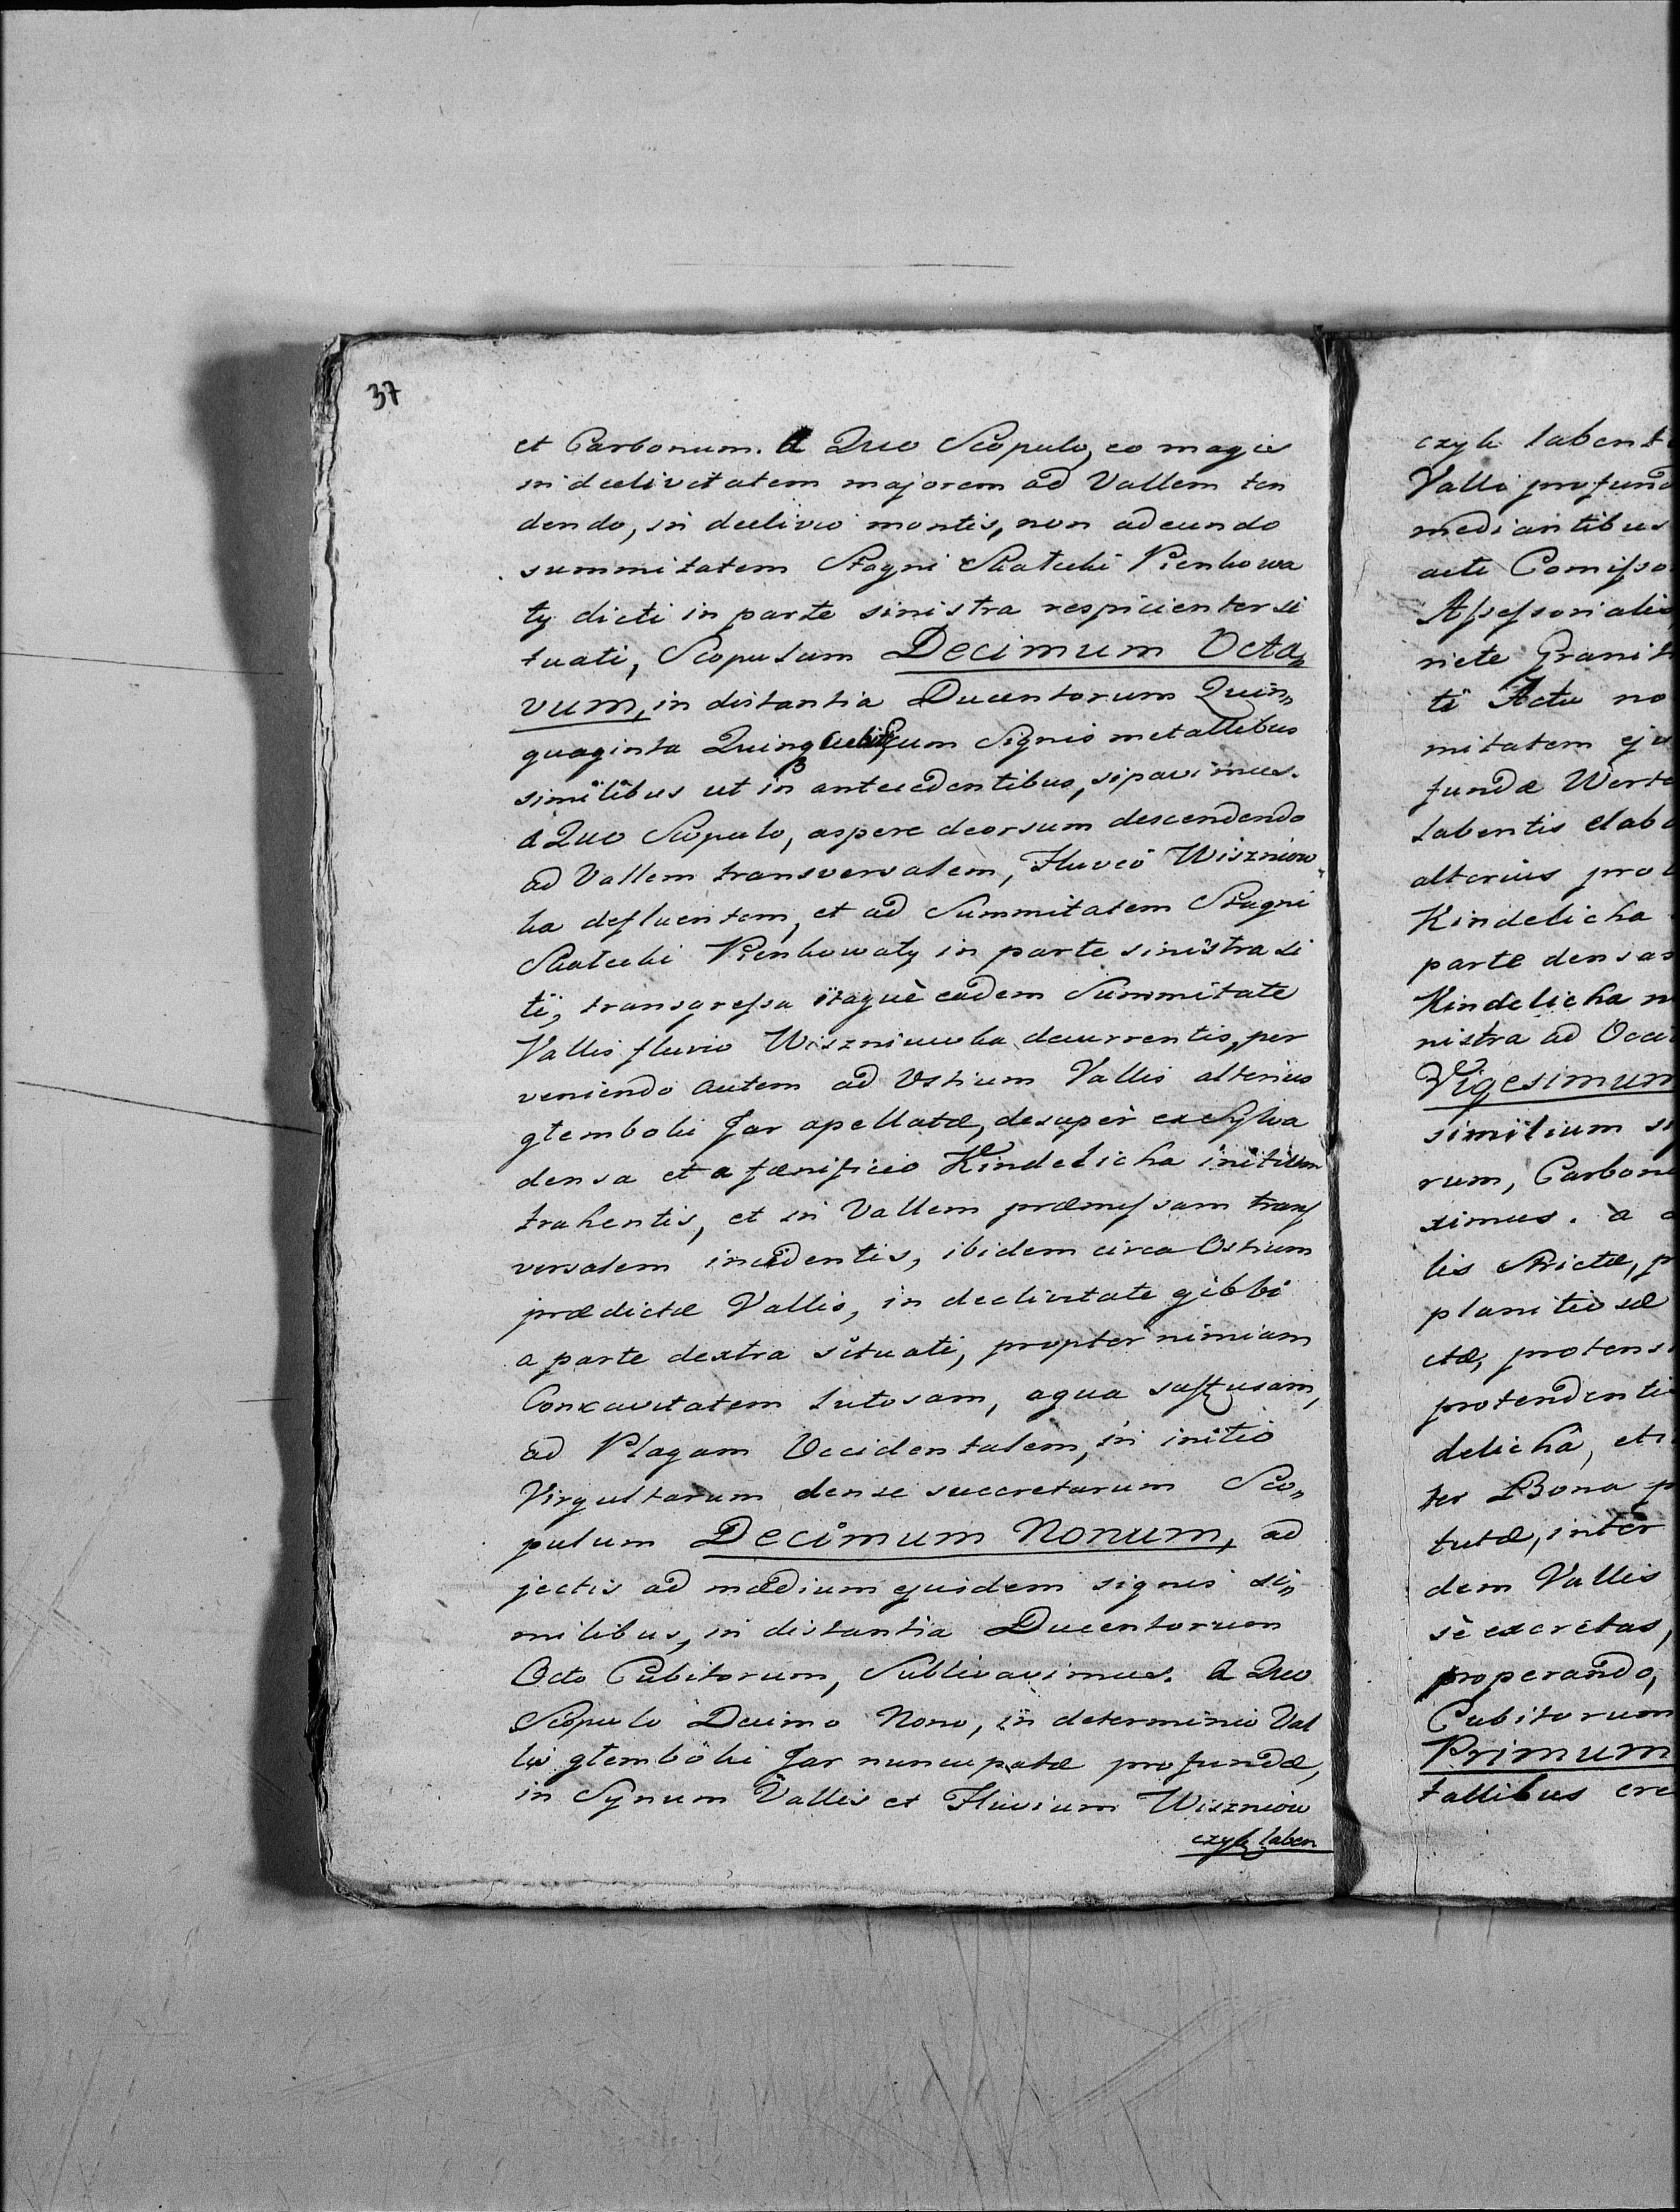 37
et Carbonum. A Quo Scopulo, eo magis
in declivitatem majorem ad Vallem ten
dendo, in declivio montis, non adeundo
summitatem Stagni Skatecki Pienkowa
ty dicti in parte sinistra respicienter si
tuati, Scopulum Decimum Octa„
vum, in distantia Ducentorum Quin„
quaginta Quinq Cubit um Signis metallibus
similibus ut in antecedentibus, sipavimus.
a Quo Scopulo, aspere deorsum descendendo
ad Vallem transversalem, Fluvio Wiszniow
ka defluentem, et ad Summitatem Stagni
Skatecki Pienkowaty in parte sinistra si
ti, transgressa itaquè eadem Summitate
Vallis fluvio Wiszniowka decurrentis, per
veniendo autem ad Ostium Vallis alterius
głemboki Jar apellatæ, desuper ex Sylva
densa et a fænificio Kindelicha initium
trahentis, et in Vallem præmissam trans
versalem incidentis, ibidem circa Ostium
prædictæ Vallis, in declivitate gibbi
a parte dextra situati, propter nimiam
Concavitatem lutosam, aqua suffusam,
ad Plagam Occidentalem, in initio
Virgultarum dense succretarum Sco„
pulum Decimum Nonum, ad
jectis ad mædium ejuidem signis si„
milibus, in distantia Ducentorum
Octo Cubitorum, Sublivavimus. A Quo
Scopulo Decimo Nono, in determinio Val
lis głemboki Jar nuncupatæ profundæ,
in Synum Vallis et Fluvium Wiszniow
czyk laben
czyk labent
Valli profund
mediantibus
acti Comisso
Assessorialis
riete Granit
ti Actu no
mitatem eju
fundæ Werte
labentis elab
alterius pro
Kindelicha
parte densas
Kindelicha n
nistra ad Occi
Vigesimum
similium si
rum, Carbon
ximus. a
lis Strictæ, p
planitiosæ
ctæ, protens
protendenti
delicha, et
ter Bona p
tutæ, inter
dem Vallis
sè excretas,
properando,
Cubitorum
Primum
tallibus ere